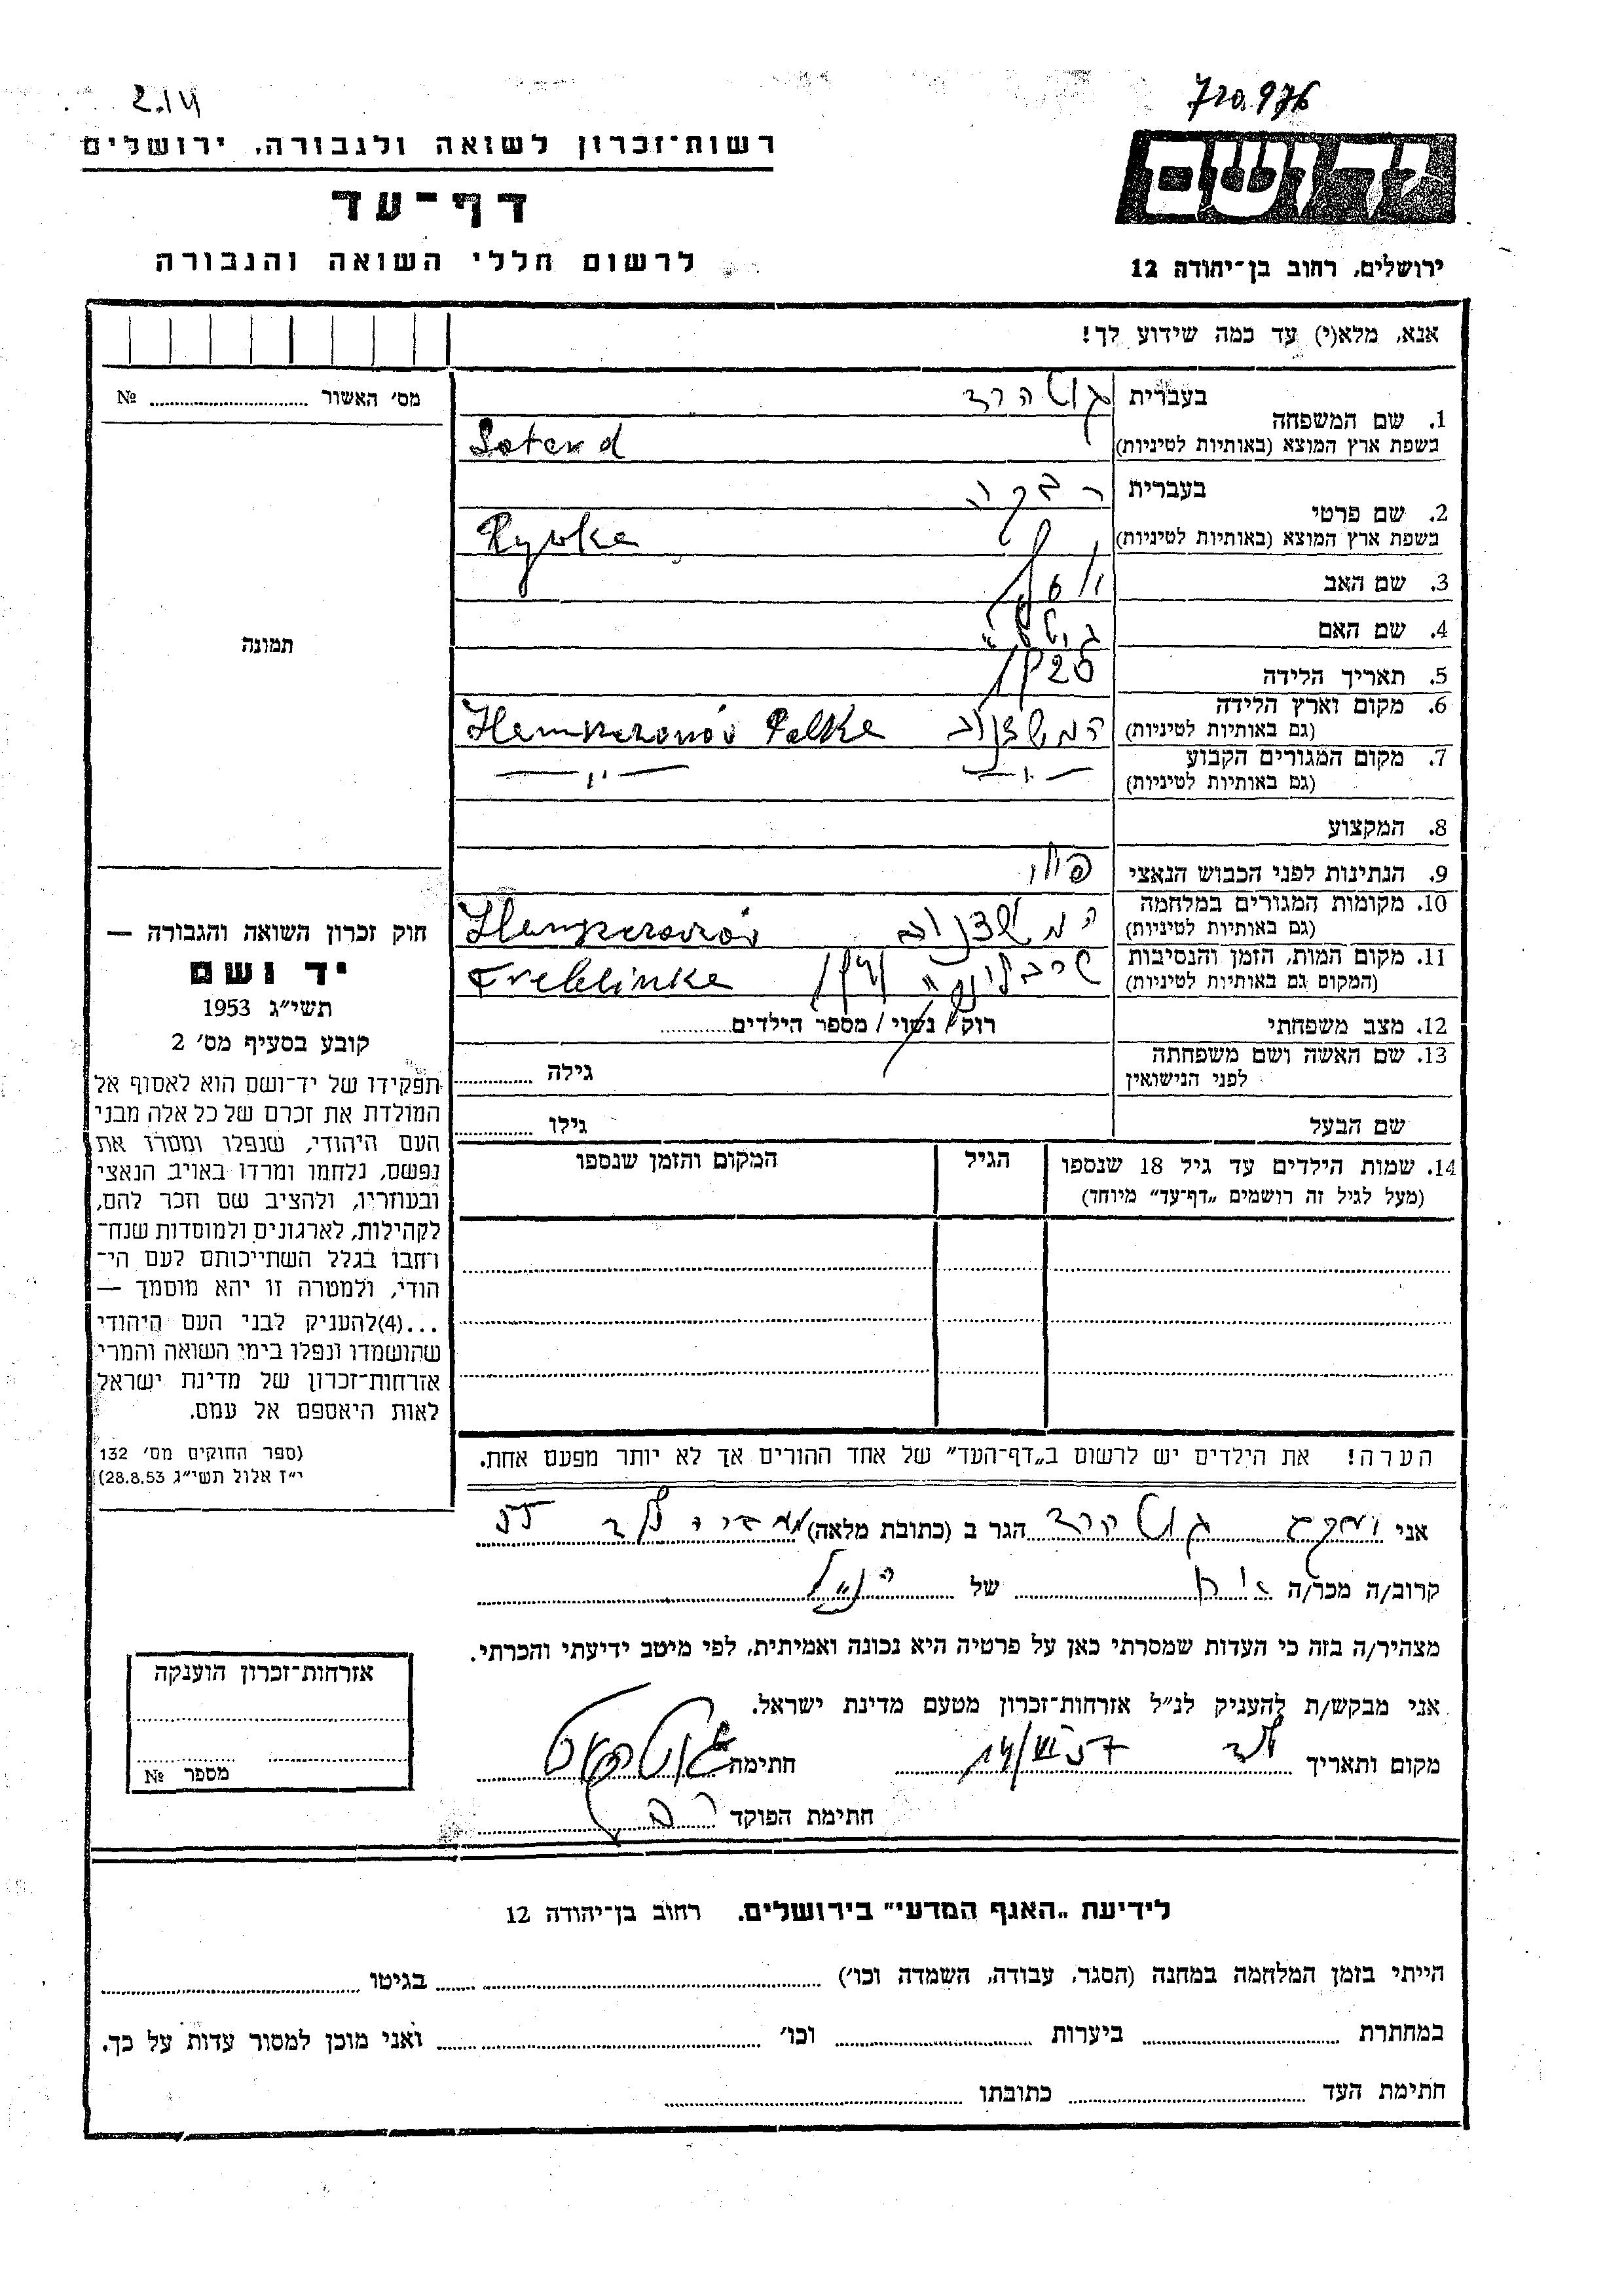 2.14
720.976
רשות־זכרון לשואה ולגבורה, ירושלים
יד ושם
דף־עד
לרשום חללי השואה והגבורה
ירושלים, רחוב בן־יהודה 12
אנא, מלא(י) עד כמה שידוע לך!
מס׳ האשור № 
1. שם המשפחה
בעברית גוטהרד
בשפת ארץ המוצא (באותיות לטיניות)
2. שם פרטי
בעברית רבקה
בשפת ארץ המוצא (באותיות לטיניות) Rywka
3. שם האב
4. שם האם
5. תאריך הלידה
6. מקום וארץ הלידה
(גם באותיות לטיניות)
7. מקום המגורים הקבוע
(גם באותיות לטיניות) —〃— —〃—
8. המקצוע
9. הנתינות לפני הכבוש הנאצי פולן
10. מקומות המגורים במלחמה
(גם באותיות לטיניות)
11. מקום המות, הזמן והנסיבות
(המקום גם באותיות לטיניות) טרבלינקה Treblinka
12. מצב משפחתי רוק / נשוי / מספר הילדים
13. שם האשה ושם משפחתה
לפני הנישואין גילה
שם הבעל גילו
14. שמות הילדים עד גיל 18 שנספו
(מעל לגיל זה רושמים „דף־עד״ מיוחד)
הגיל
המקום והזמן שנספו
הערה! את הילדים יש לרשום ב„דף־העד״ של אחד ההורים אך לא יותר מפעם אחת.
תמונה
חוק זכרון השואה והגבורה —
יד ושם
תשי״ג 1953
קובע בסעיף מס׳ 2
תפקידו של יד־ושם הוא לאסוף אל
המולדת את זכרם של כל אלה מבני
העם היהודי, שנפלו ומסרו את
נפשם, נלחמו ומרדו באויב הנאצי
ובעוזריו, ולהציב שם וזכר להם,
לקהילות, לארגונים ולמוסדות שנח־
רחבו בגלל השתייכותם לעם הי־
הודי, ולמטרה זו יהא מוסמך —
...(4)להעניק לבני העם היהודי
שהושמדו ונפלו בימי השואה והמרי
אזרחות־זכרון של מדינת ישראל
לאות היאספם אל עמם.
(ספר החוקים מס׳ 132
י״ז אלול תשי״ג 28.8.53)
אני גוטהרד הגר ב (כתובת מלאה)
קרוב/ה מכר/ה אח של הנ״ל
מצהיר/ה בזה כי העדות שמסרתי כאן על פרטיה היא נכונה ואמיתית, לפי מיטב ידיעתי והכרתי.
אני מבקש/ת להעניק לנ״ל אזרחות־זכרון מטעם מדינת ישראל.
מקום ותאריך לוד חתימה
חתימת הפוקד
אזרחות־זכרון הוענקה
מספר №
לידיעת „האגף המדעי״ בירושלים. רחוב בן־יהודה 12
הייתי בזמן המלחמה במחנה (הסגר, עבודה, השמדה וכו׳) בגיטו
במחתרת ביערות וכו׳ ואני מוכן למסור עדות על כך.
חתימת העד כתובתו